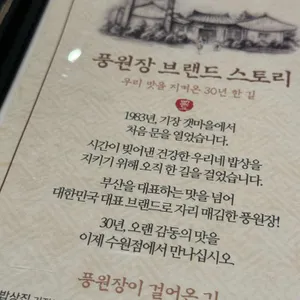 풍원장 브랜드 스토리
우리 맛을 지켜온 30년 한 길
1983년, 기장 갯마을에서
처음 문을 열었습니다.
시간이 빚어낸 건강한 우리네 밥상을
지키기 위해 오직 한 길을 걸었습니다.
부산을 대표하는 맛을 넘어
대한민국 대표 브랜드로 자리 매김한 풍원장!
30년, 오랜 감동의 맛을
이제 수원점에서 만나십시오
풍원장이 걸어온 길